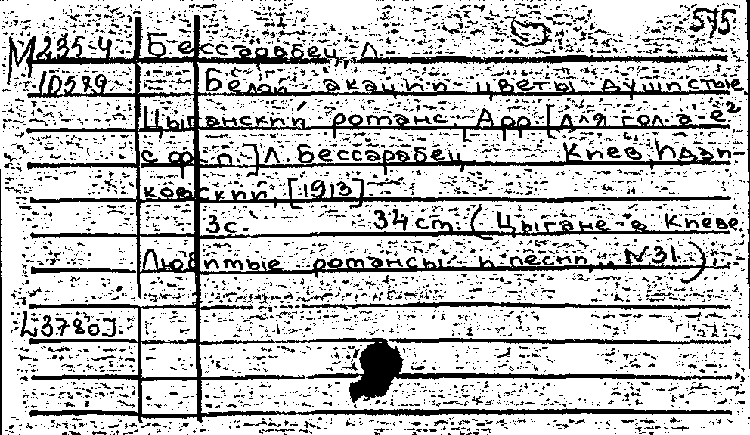 515
М 235-4 Бессарабец, Л.
10589 Белой акации цветы душистые.
Цыганский романс. Арр. [для гол. a-e²
с ф.-п.] Л. Бессарабец. Киев, Идзи-
ковский, [1913].
3 с. 34 см. (Цыгане в Киеве.
Любимые романсы и песни, .. N31.);